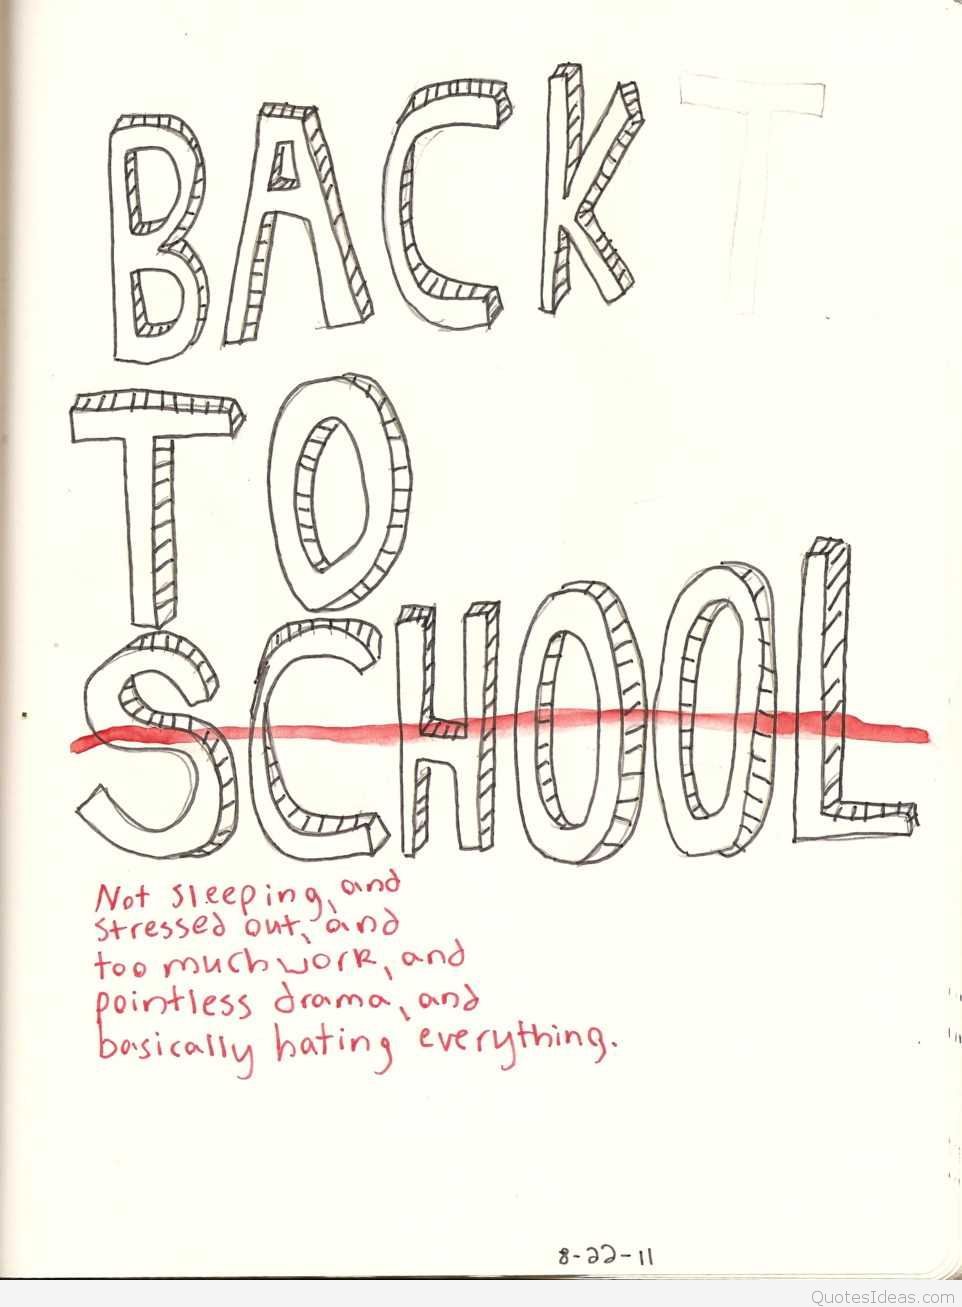 BACK T
TO
SCHOOL
Not sleeping, and
stressed out, and
too much work, and
pointless drama, and
basically hating everything.
8-22-11
QuotesIdeas.com